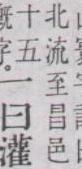 北流至昌邑
十五
字。一曰灌